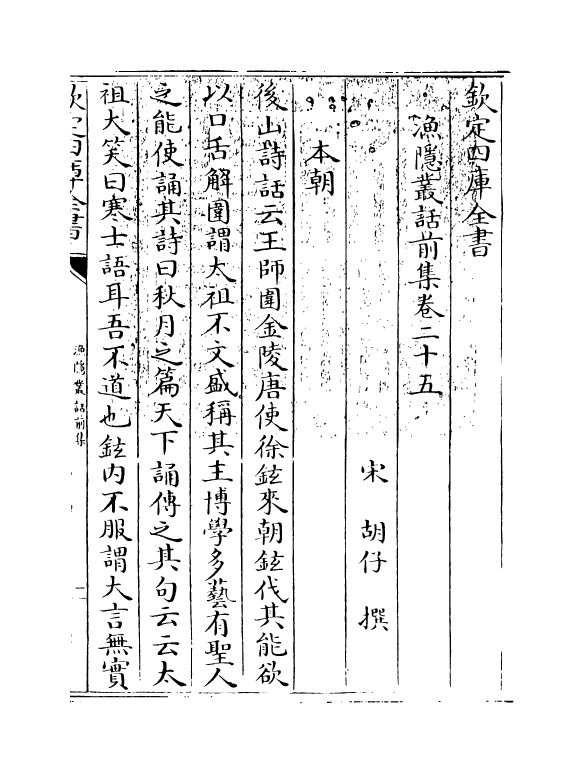 欽定四庫全書
漁隱叢話前集卷二十五
宋 胡仔 撰
本朝
後山詩話云王師圍金陵唐使徐鉉來朝鉉伐其能欲
以口舌解圍謂太祖不文盛稱其主博學多藝有聖人
之能使誦其詩曰秋月之篇天下誦傳之其句云云太
祖大笑曰寒士語耳吾不道也鉉内不服謂大言無實
欽定四庫全書
漁隱叢話前集
一